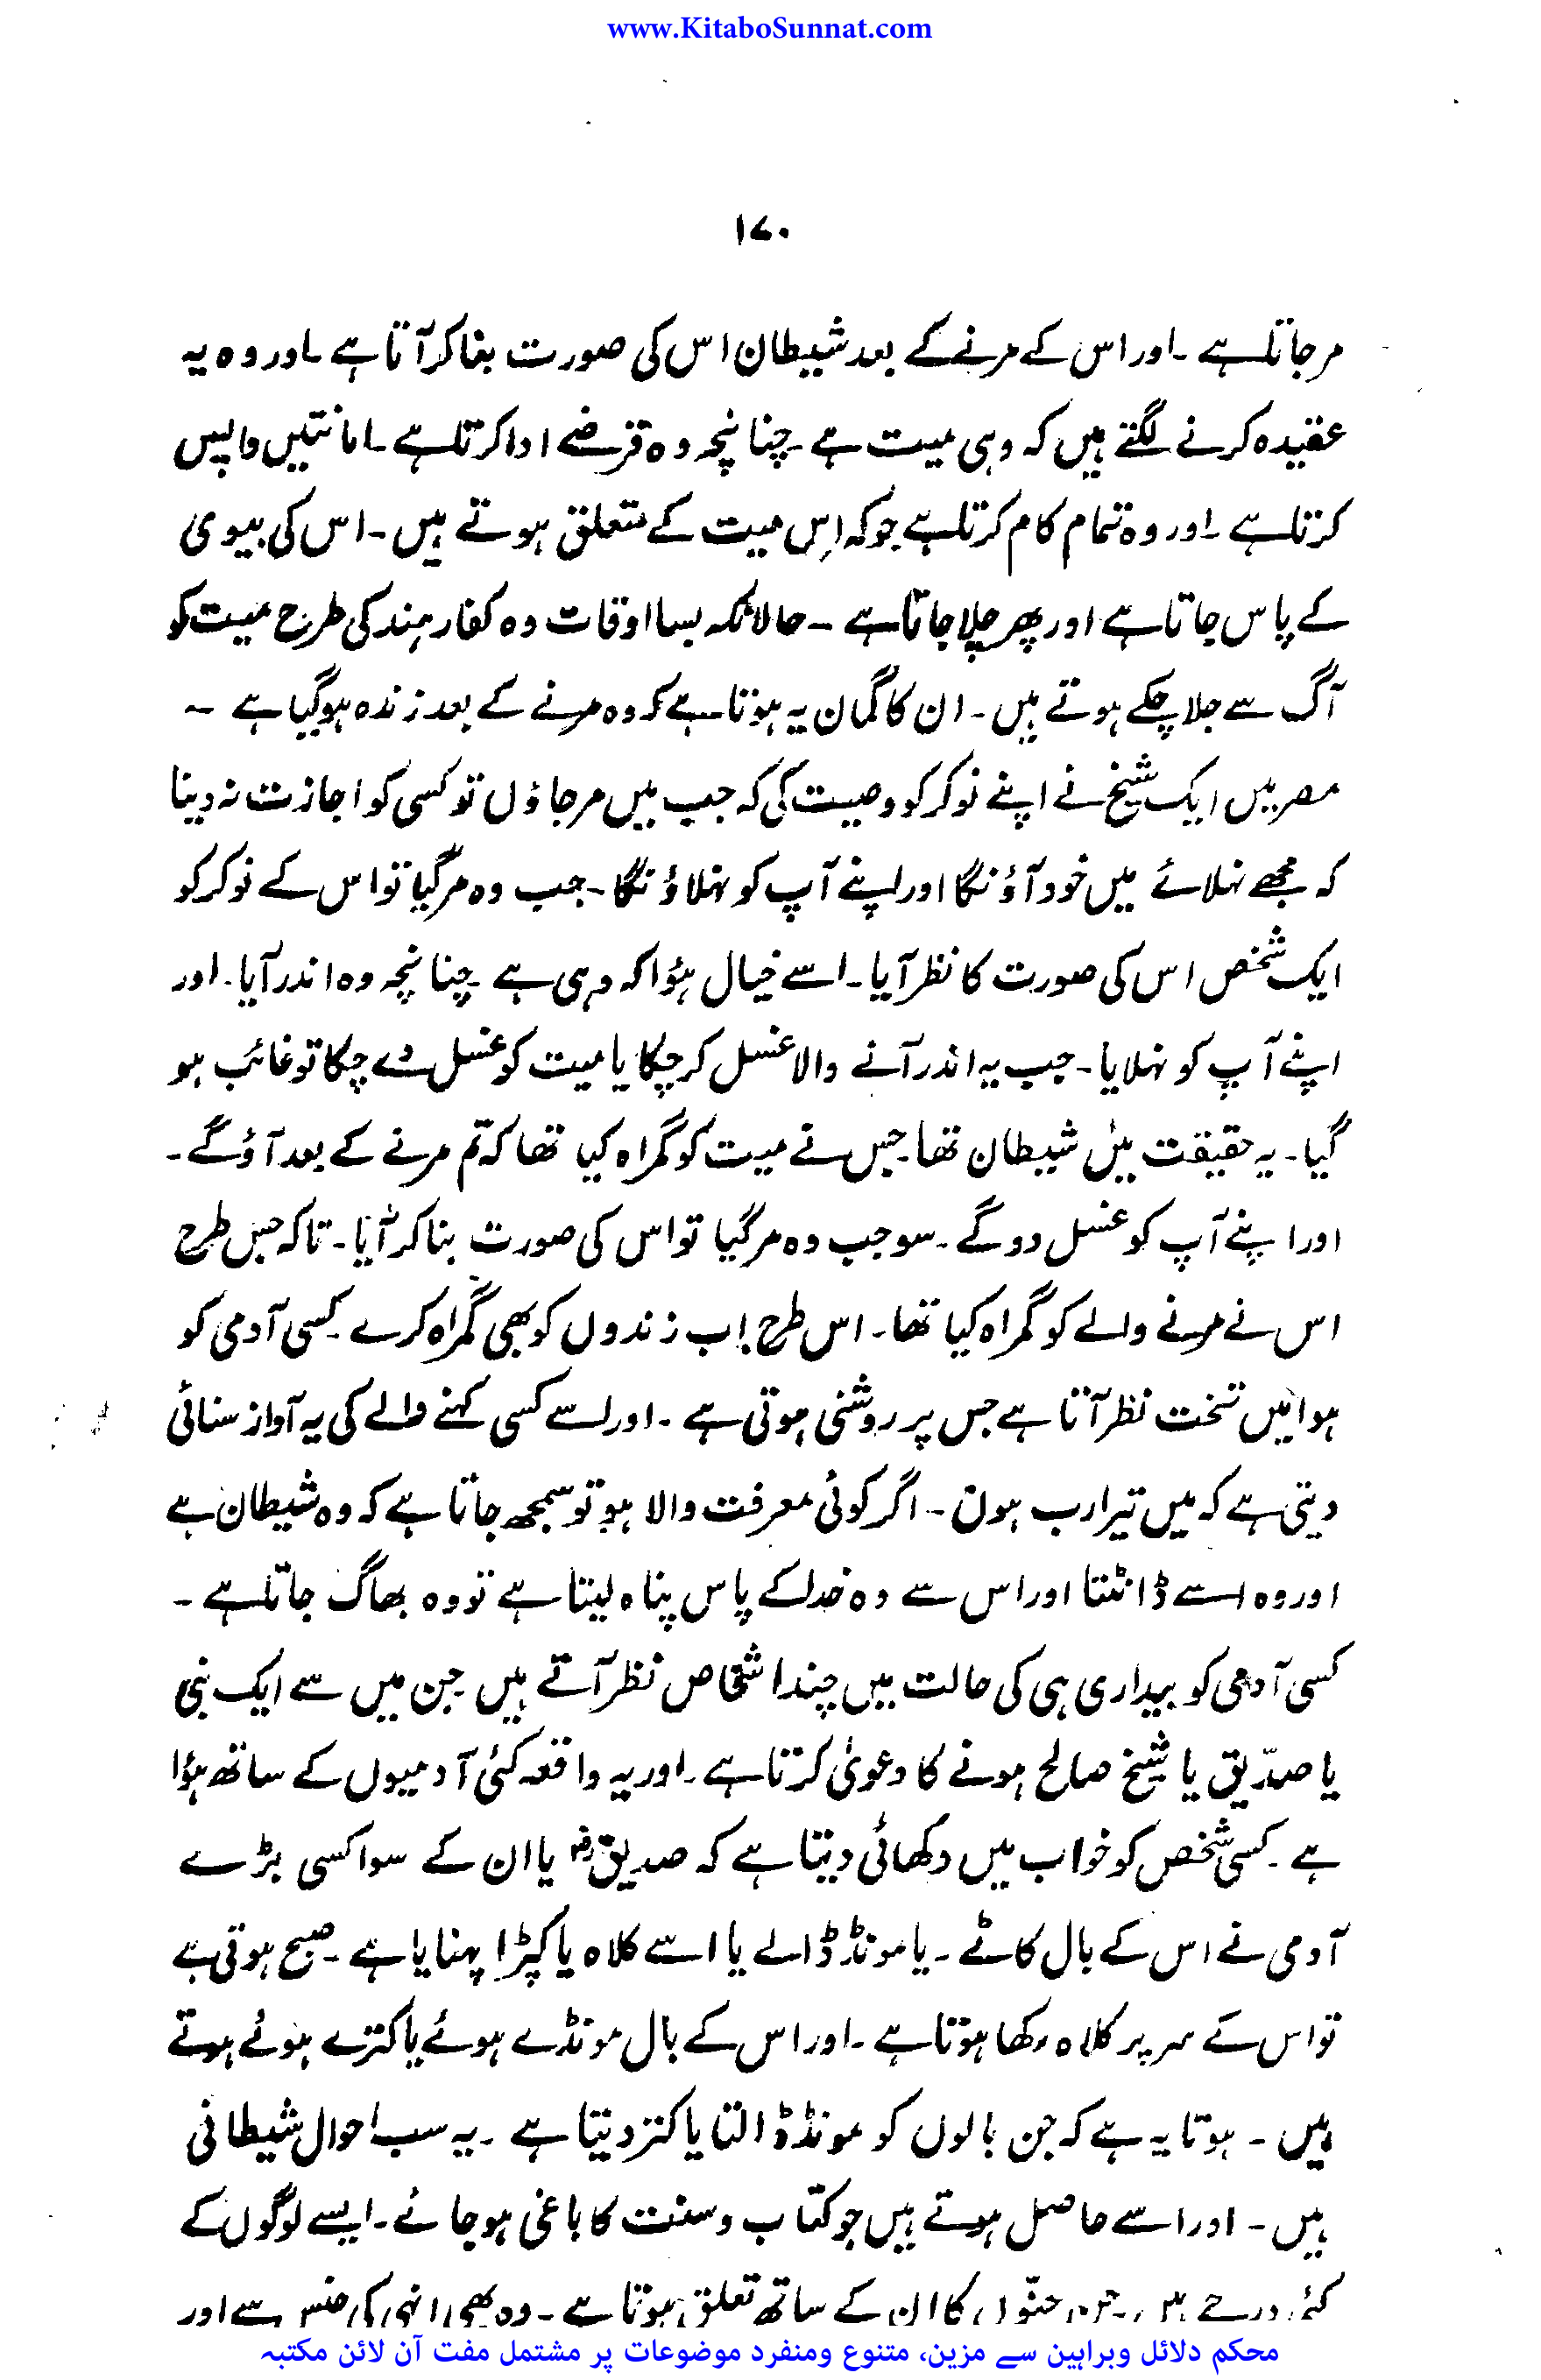 www.KitaboSunnat.com
۱۷۰
مرجاتا ہے ۔ اور اس کے مرنے کے بعد شیطان اس کی صورت بنا کر آتا ہے ۔ اور وہ یہ
عقیدہ کرنے لگتے ہیں کہ وہی میت ہے ۔ چنانچہ وہ قرضے ادا کرتا ہے ۔ امانتیں واپس
کرتا ہے ۔ اور وہ تمام کام کرتا ہے جو کہ اِس میت کے متعلق ہوتے ہیں ۔ اس کی بیوی
کے پاس جاتا ہے اور پھر چلا جاتا ہے ۔ حالانکہ بسا اوقات وہ کفار ہند کی طرح میت کو
آگ سے جلا چکے ہوتے ہیں ۔ ان کا گمان یہ ہوتا ہے کہ وہ مرنے کے بعد زندہ ہو گیا ہے ۔
مصر میں ایک شیخ نے اپنے نوکر کو وصیت کی کہ جب میں مر جاؤں تو کسی کو اجازت نہ دینا
کہ مجھے نہلائے میں خود آؤنگا اور اپنے آپ کو نہلاؤنگا ۔ جب وہ مر گیا تو اس کے نوکر کو
ایک شخص اس کی صورت کا نظر آیا ۔ اسے خیال ہؤا کہ وہی ہے ۔ چنانچہ وہ اندر آیا ۔ اور
اپنے آپ کو نہلایا ۔ جب یہ اندر آنے والا غسل کر چکا یا میت کو غسل دے چکا تو غائب ہو
گیا ۔ یہ حقیقت میں شیطان تھا ۔ جس نے میت کو گمراہ کیا تھا کہ تم مرنے کے بعد آؤ گے ۔
اور اپنے آپ کو غسل دو گے ۔ سو جب وہ مر گیا تو اس کی صورت بنا کر آیا ۔ تاکہ جس طرح
اس نے مرنے والے کو گمراہ کیا تھا ۔ اس طرح اب زندوں کو بھی گمراہ کرے ۔ کسی آدمی کو
ہوا میں تخت نظر آتا ہے جس پر روشنی ہوتی ہے ۔ اور اسے کسی کہنے والے کی یہ آواز سنائی
دیتی ہے کہ میں تیرا رب ہوں ۔ اگر کوئی معرفت والا ہو تو سمجھ جاتا ہے کہ وہ شیطان ہے
اور وہ اسے ڈانٹتا اور اس سے وہ خدا کے پاس پناہ لیتا ہے تو وہ بھاگ جاتا ہے ۔
کسی آدمی کو بیداری ہی کی حالت میں چند اشخاص نظر آتے ہیں جن میں سے ایک نبی
یا صدّیق یا شیخ صالح ہونے کا دعویٰ کرتا ہے ۔ اور یہ واقعہ کئی آدمیوں کے ساتھ ہؤا
ہے ۔ کسی شخص کو خواب میں دکھائی دیتا ہے کہ صدیقؓ یا ان کے سوا کسی بڑے
آدمی نے اس کے بال کاٹے ۔ یا مونڈ ڈالے یا اسے کلاہ یا کپڑا پہنایا ہے ۔ صبح ہوتی ہے
تو اس کے سر پر کلاہ رکھا ہوتا ہے ۔ اور اس کے بال مونڈے ہوئے یا کترے ہوئے ہوتے
ہیں ۔ ہوتا یہ ہے کہ جن بالوں کو مونڈ ڈالتا یا کتر دیتا ہے ۔ یہ سب احوال شیطانی
ہیں ۔ اور اسے حاصل ہوتے ہیں جو کتاب و سنت کا باغی ہو جائے ۔ ایسے لوگوں کے
کئی درجے ہیں ۔ جن جنّوں کا ان کے ساتھ تعلق ہوتا ہے ۔ وہ بھی انہی کی جنس سے اور
محکم دلائل وبراہین سے مزین، متنوع ومنفرد موضوعات پر مشتمل مفت آن لائن مکتبہ